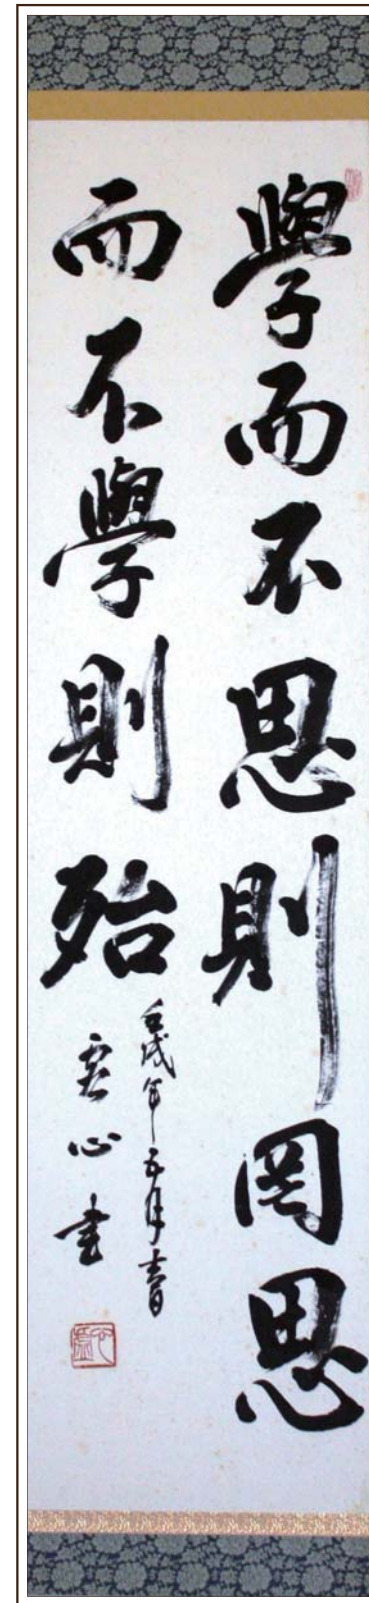 學而不思則罔思
而不學則殆
壬戌年五月十一日
虛心書